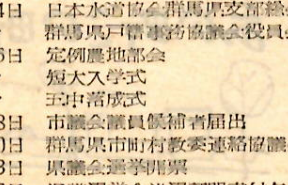 4日 日本水道協会群馬県支部総
〃 群馬県戸籍事務協議会役員
6日 定例農地部会
〃 短大入学式
〃 玉中落成式
8日 市議会議員候補者届出
0日 群馬県市町村教委連絡協議
3日 県議会選挙開票